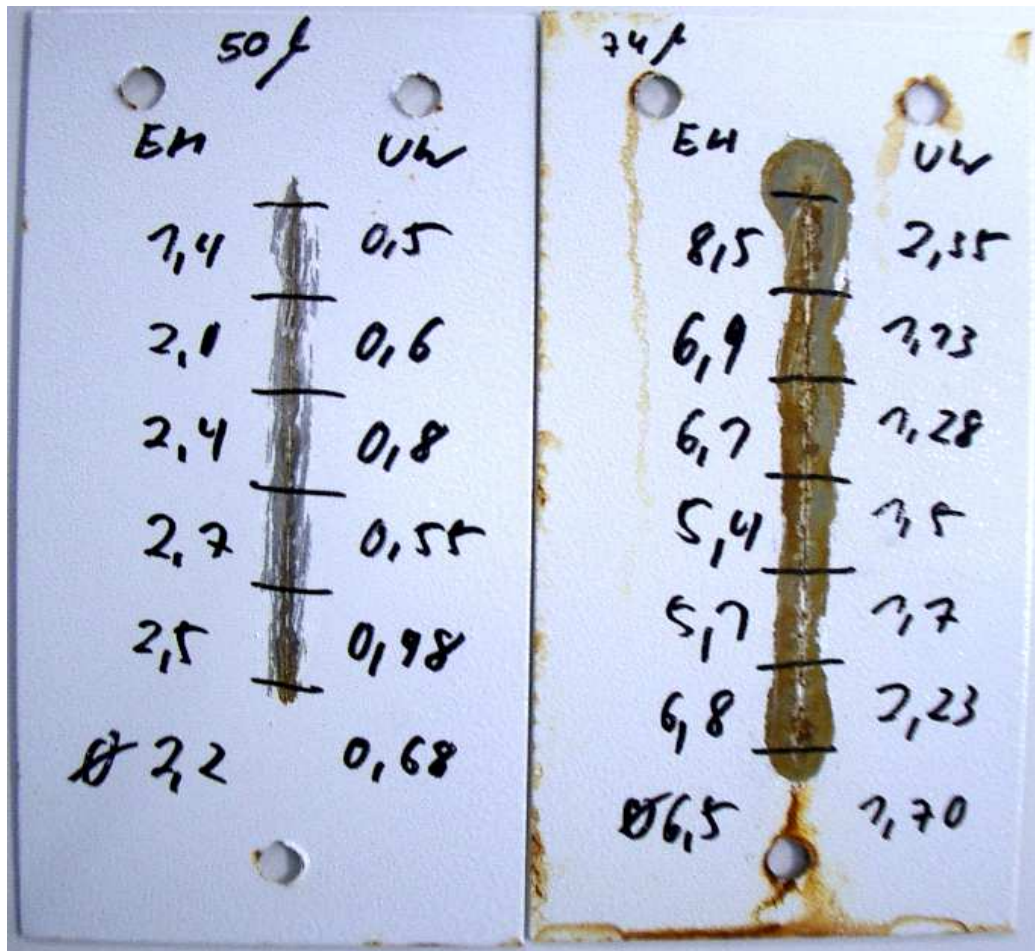 50 µ
EH UW
1,4 0,5
2,1 0,6
2,4 0,8
2,7 0,55
2,5 0,98
Ø 2,2 0,68
74 µ
EH UW
8,5 2,35
6,9 1,13
6,1 1,28
5,4 1,5
5,1 1,7
6,8 2,23
Ø 6,5 1,70